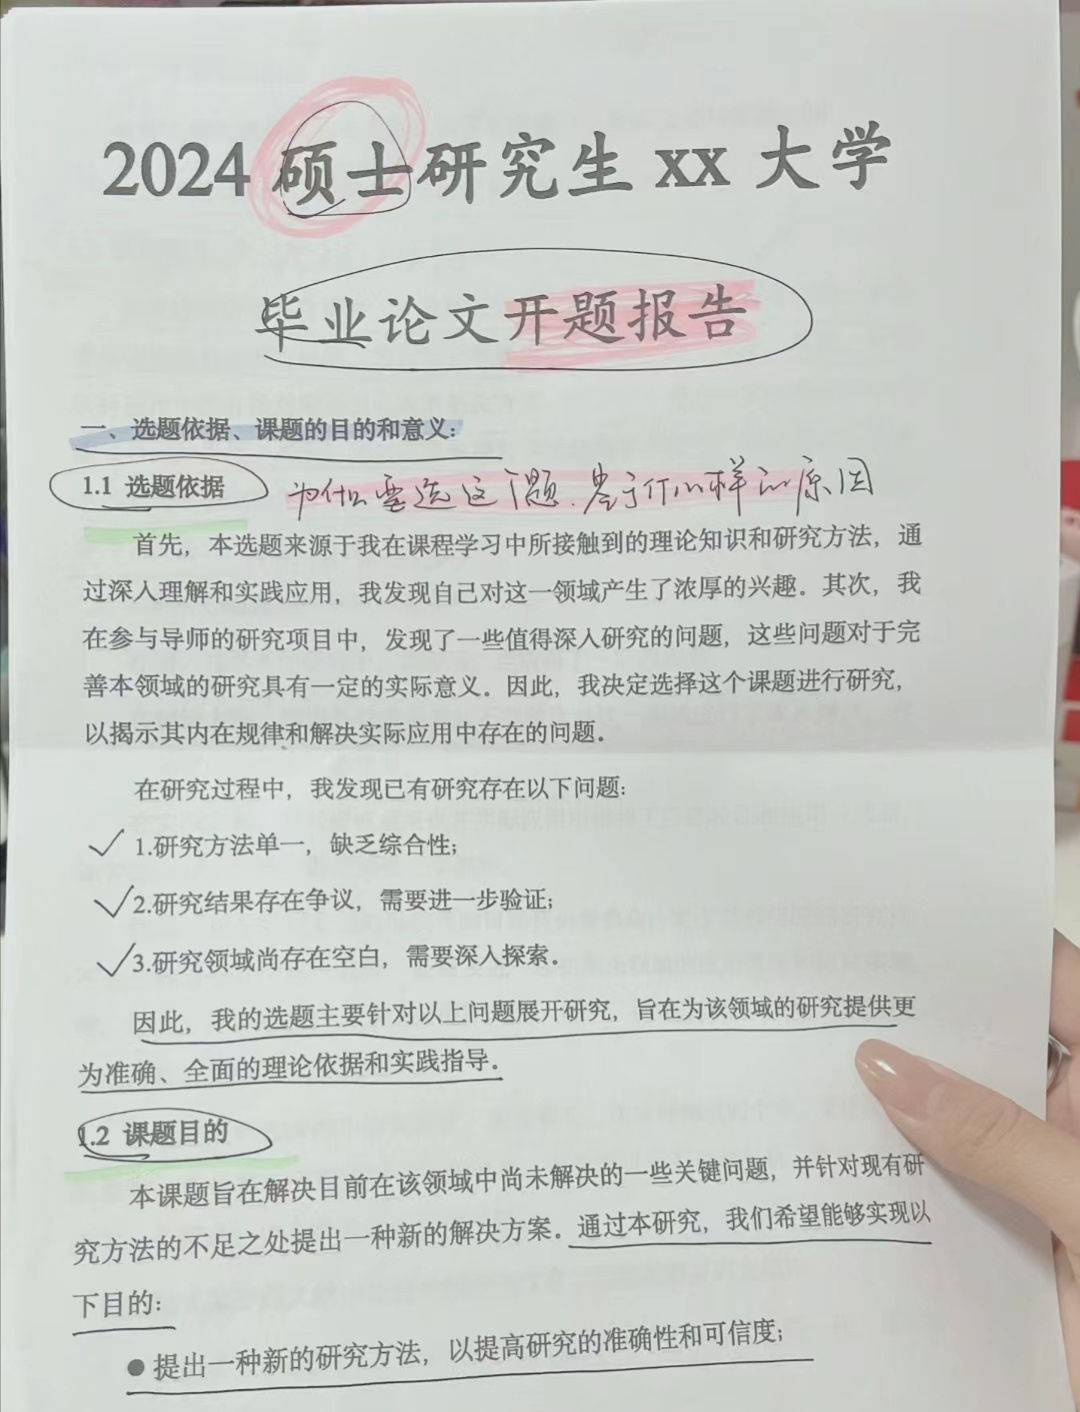 2024 硕士研究生 xx 大学
毕业论文开题报告
一、选题依据、课题的目的和意义：
1.1 选题依据 为什么要选这个题.基于什么样的原因
首先，本选题来源于我在课程学习中所接触到的理论知识和研究方法，通
过深入理解和实践应用，我发现自己对这一领域产生了浓厚的兴趣。其次，我
在参与导师的研究项目中，发现了一些值得深入研究的问题，这些问题对于完
善本领域的研究具有一定的实际意义。因此，我决定选择这个课题进行研究，
以揭示其内在规律和解决实际应用中存在的问题。
在研究过程中，我发现已有研究存在以下问题：
1.研究方法单一，缺乏综合性；
2.研究结果存在争议，需要进一步验证；
3.研究领域尚存在空白，需要深入探索。
因此，我的选题主要针对以上问题展开研究，旨在为该领域的研究提供更
为准确、全面的理论依据和实践指导。
1.2 课题目的
本课题旨在解决目前在该领域中尚未解决的一些关键问题，并针对现有研
究方法的不足之处提出一种新的解决方案。通过本研究，我们希望能够实现以
下目的：
●提出一种新的研究方法，以提高研究的准确性和可信度；